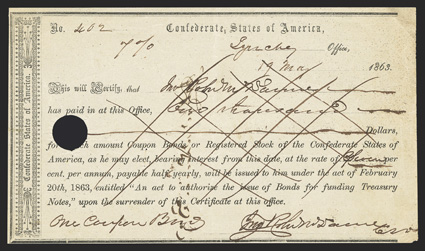 Confederate States of America.
No. 402 Confederate States of America,
7% Office,
19 May 1863.
This will Certify, that
has paid in at this Office, thousand
Dollars,
for which amount Coupon Bonds or Registered Stock of the Confederate States of
America, as he may elect, bearing interest from this date, at the rate of Seven per
cent. per annum, payable half yearly, will be issued to him under the act of February
20th, 1863, entitled "An act to authorize the issue of Bonds for funding Treasury
Notes," upon the surrender of this Certificate at this office.
One Coupon Bond